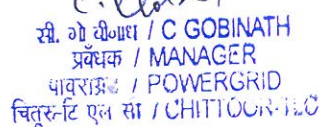 सी. गो बीनाथ / C GOBINATH
प्रबंधक / MANAGER
पावरग्रिड / POWERGRID
/ CHITTOOR-TLC